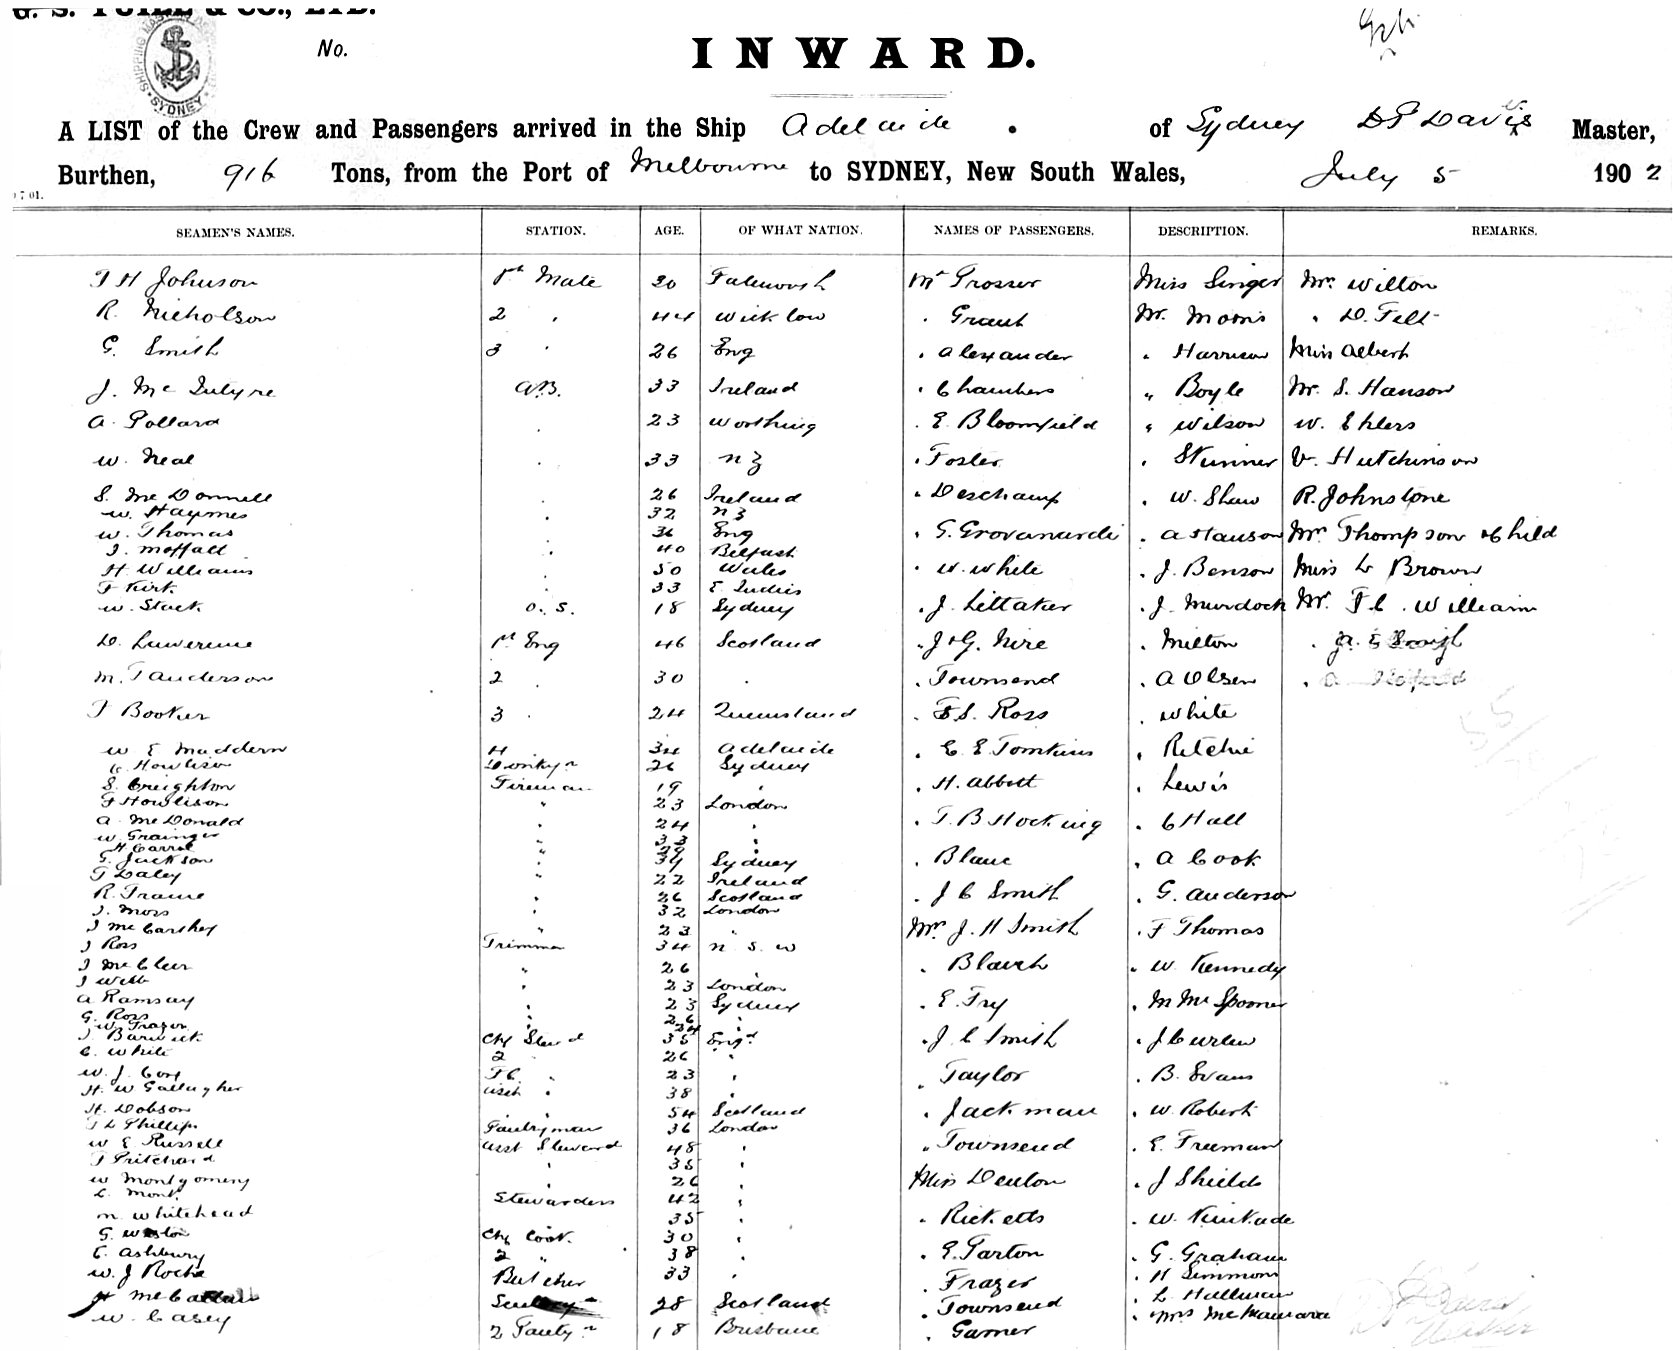 G. S. YUILL & CO., LTD.
SHIPPING MASTER SYDNEY
No.
INWARD.
A LIST of the Crew and Passengers arrived in the Ship Adelaide . of Sydney D P Davis Master,
Burthen, 916 Tons, from the Port of Melbourne to SYDNEY, New South Wales, July 5 1902
SEAMEN'S NAMES. STATION. AGE. OF WHAT NATION. NAMES OF PASSENGERS. DESCRIPTION. REMARKS.
J H Johnson 1st Mate 30 Falmouth Mr Prosser Miss Singer Mr. Wilton
R. Nicholson 2 " 44 Wicklow " Grant Mr. Morris " D. Felt
G. Smith 3 " 26 Eng " Alexander " Harrison Miss Albert
J. McIntyre A.B. 33 Ireland " Chambers " Boyle Mr. S. Hanson
A. Pollard " 23 Worthing " E. Bloomfield " Wilson W. Ehlers
W. Neal " 33 N Z " Foster " Skinner V. Hutchinson
S. McDonnell " 26 Ireland " Deschamp " W. Shaw R. Johnstone
W. Haymes " 32 N Z
W. Thomas " 36 Eng " G. Grovanardi " A Hanson Mr. Thompson & Child
J. Moffatt " 40 Belfast
H Williams " 50 Wales " W. White " J. Benson Miss L Brown
F Kirk " 33 E. Indies
W. Stack O. S. 18 Sydney " J. Littaker " J. Murdock Mr. F C. William
D. Lawrence 1st Eng 46 Scotland " J & G. Nire " Milton
M. T Anderson 2 " 30 " " Townsend " A Olsen
J Booker 3 " 24 Queensland " F S. Ross " White
W E Maddern 4 34 Adelaide " C E Tomkins " Ritchie
Howlison Donkyn 26 Sydney
S. Creighton Fireman 19 " " H. Abbott " Lewis
F Howlison " 23 London
A. McDonald " 24 " " T. B Hocking " C Hall
W. Grainger " 33 "
H Carrol " 29 "
G. Jackson " 34 Sydney " Blanc " A Cook
T Daley " 22 Ireland
R. Frame " 26 Scotland " J C Smith " G. Anderson
J. Moss " 32 London
J McCarthey " 23 " Mr. J. H Smith " F Thomas
J Ross Trimmer 34 N. S. W
J McCleer " 26 " " Blanch " W. Kennedy
J Webb " 23 London
A Ramsay " 23 Sydney " E. Fry " M McSpooner
G. Ross " 26 "
W. Frazer " 34 "
J Barwick Chf Stewd 35 Engd " J. C Smith " J Curlew
C. White 2 " 26 "
W. J. Cox F C " 23 " " Taylor " B. Evans
H. W Gallagher " 38 "
H. Dobson 54 Scotland " Jackman " W. Robert
T L Phillips Pantryman 36 London
W E Russell Asst Steward 48 " " Townsend " E. Freeman
J Pritchard " 35 "
W Montgomery " 26 " Miss Deulon " J Shields
C. Monk Stewardess 42 "
M. Whitehead 35 " " Ricketts " W. Kinkade
G. Weston Chf Cook. 30 "
E. Ashbury 2 " 38 " " E. Parton " G. Graham
W. J Roche Butcher 33 " " Frazer " H Simmons
H McCallum 28 Scotland " Townsend " L. Hallman
W. Casey 2 Pantryn 18 Brisbane " Garner " Mrs McNamara